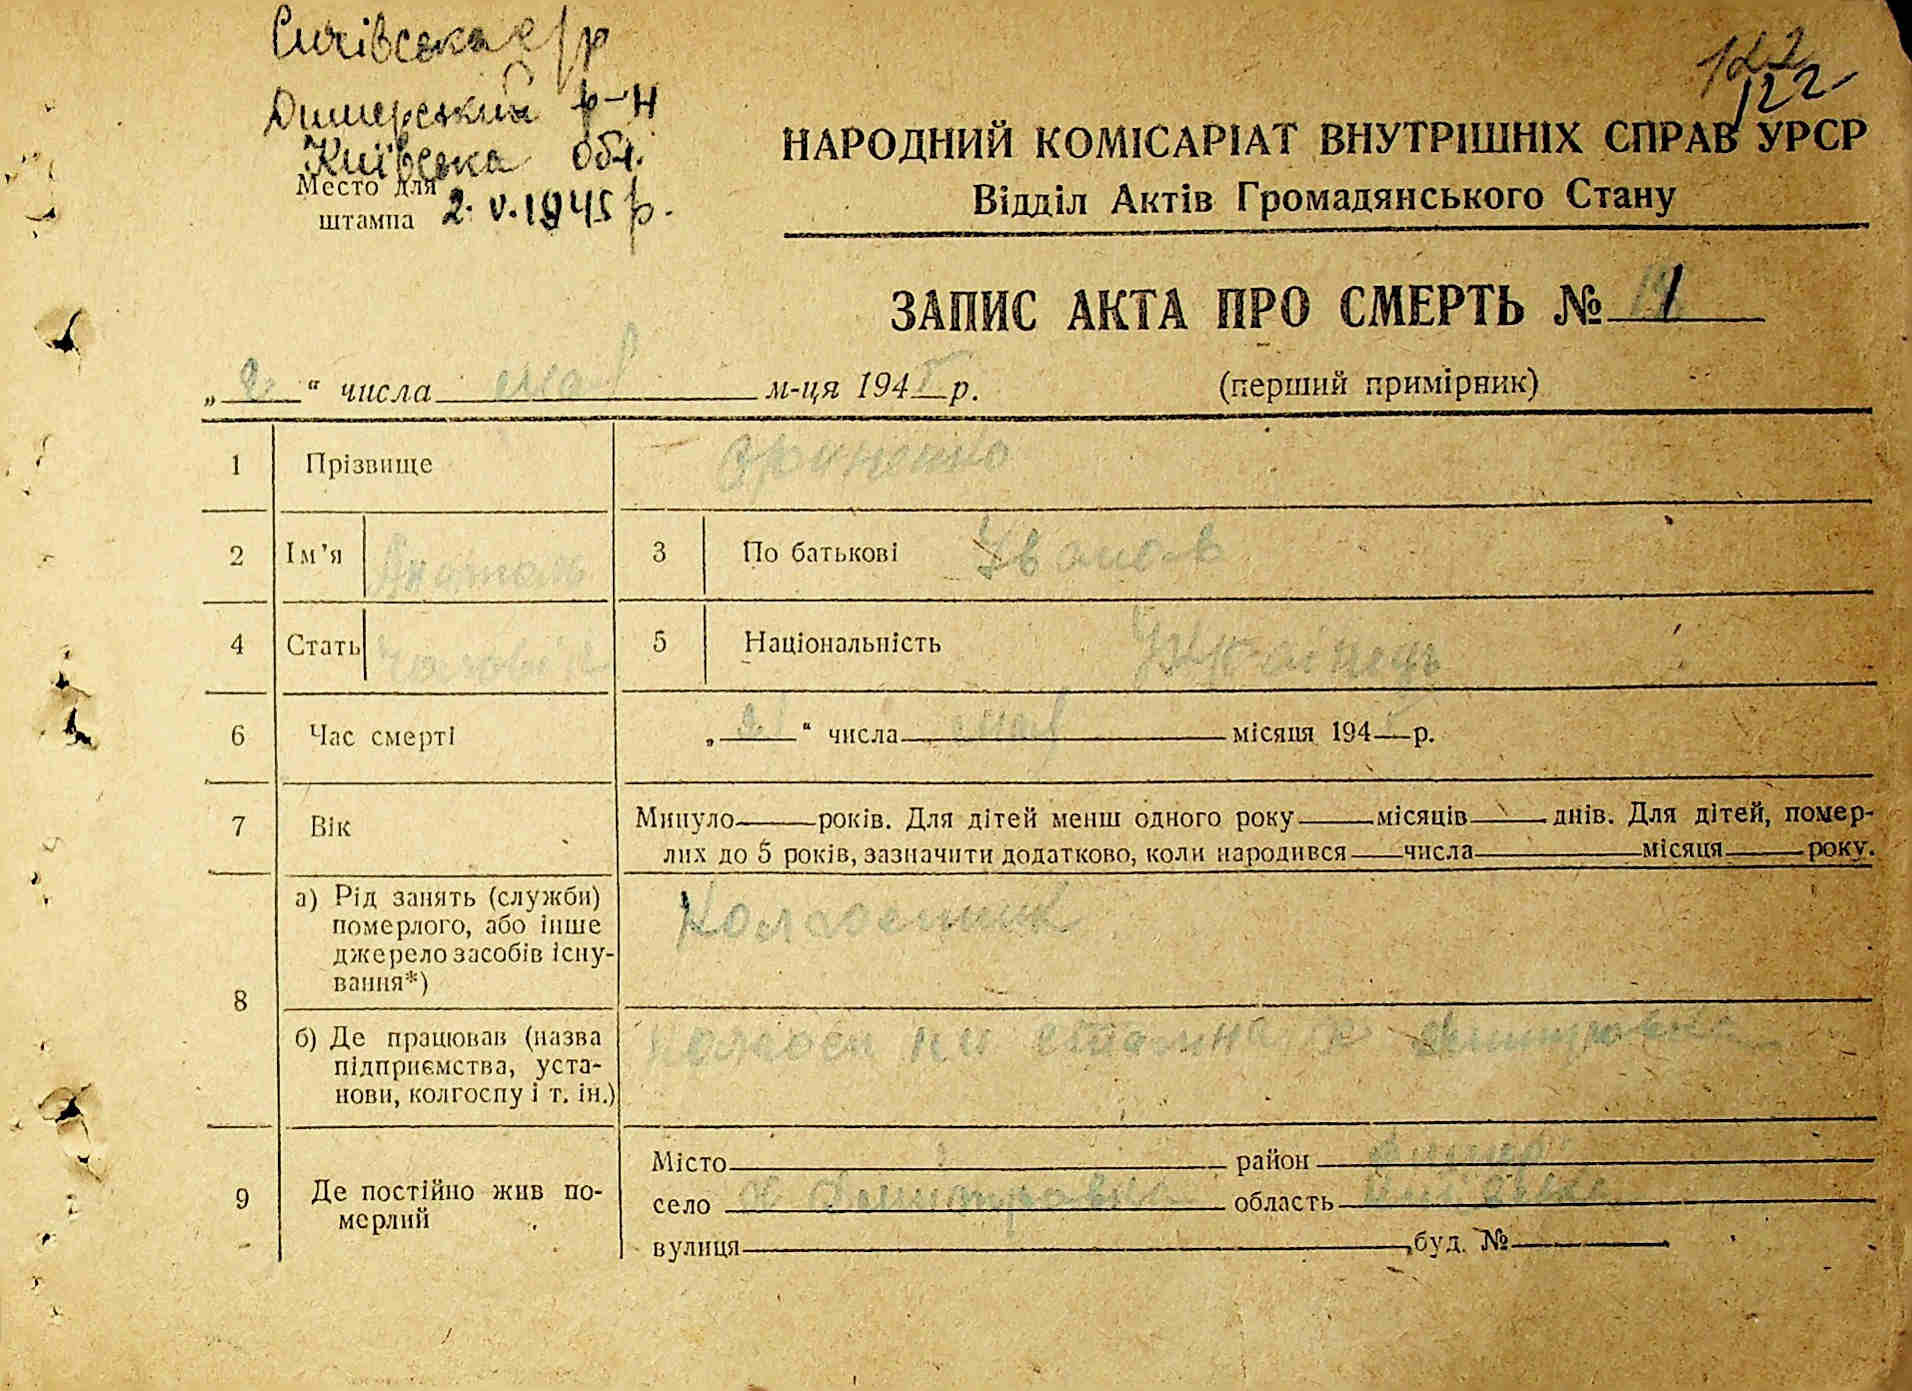 Сичівська с/р
122
Димерський р-н
122
Київська обл.
Место для
штампа 2.V.1945 р.
НАРОДНИЙ КОМІСАРІАТ ВНУТРІШНІХ СПРАВ УРСР
Відділ Актів Громадянського Стану
ЗАПИС АКТА ПРО СМЕРТЬ № 1
„2“ числа мая м-ця 1945 р. (перший примірник)
1 Прізвище
2 Ім’я Анатоль 3 По батькові Іванов
4 Стать Чоловік 5 Національність Українець
6 Час смерті „ “ числа мая місяця 194 р.
7 Вік Минуло років. Для дітей менш одного року місяців днів. Для дітей, помер-
лих до 5 років, зазначити додатково, коли народився числа місяця року.
8 а) Рід занять (служби) Колгоспник
померлого, або інше
джерело засобів існу-
вання*)
б) Де працював (назва Колгосп ім Сталіна с. Дмитрівка
підприємства, уста-
нови, колгоспу і т. ін.)
9 Де постійно жив по-
мерлий
Місто район Димер
село с Дмитровка область Київська
вулиця буд. №